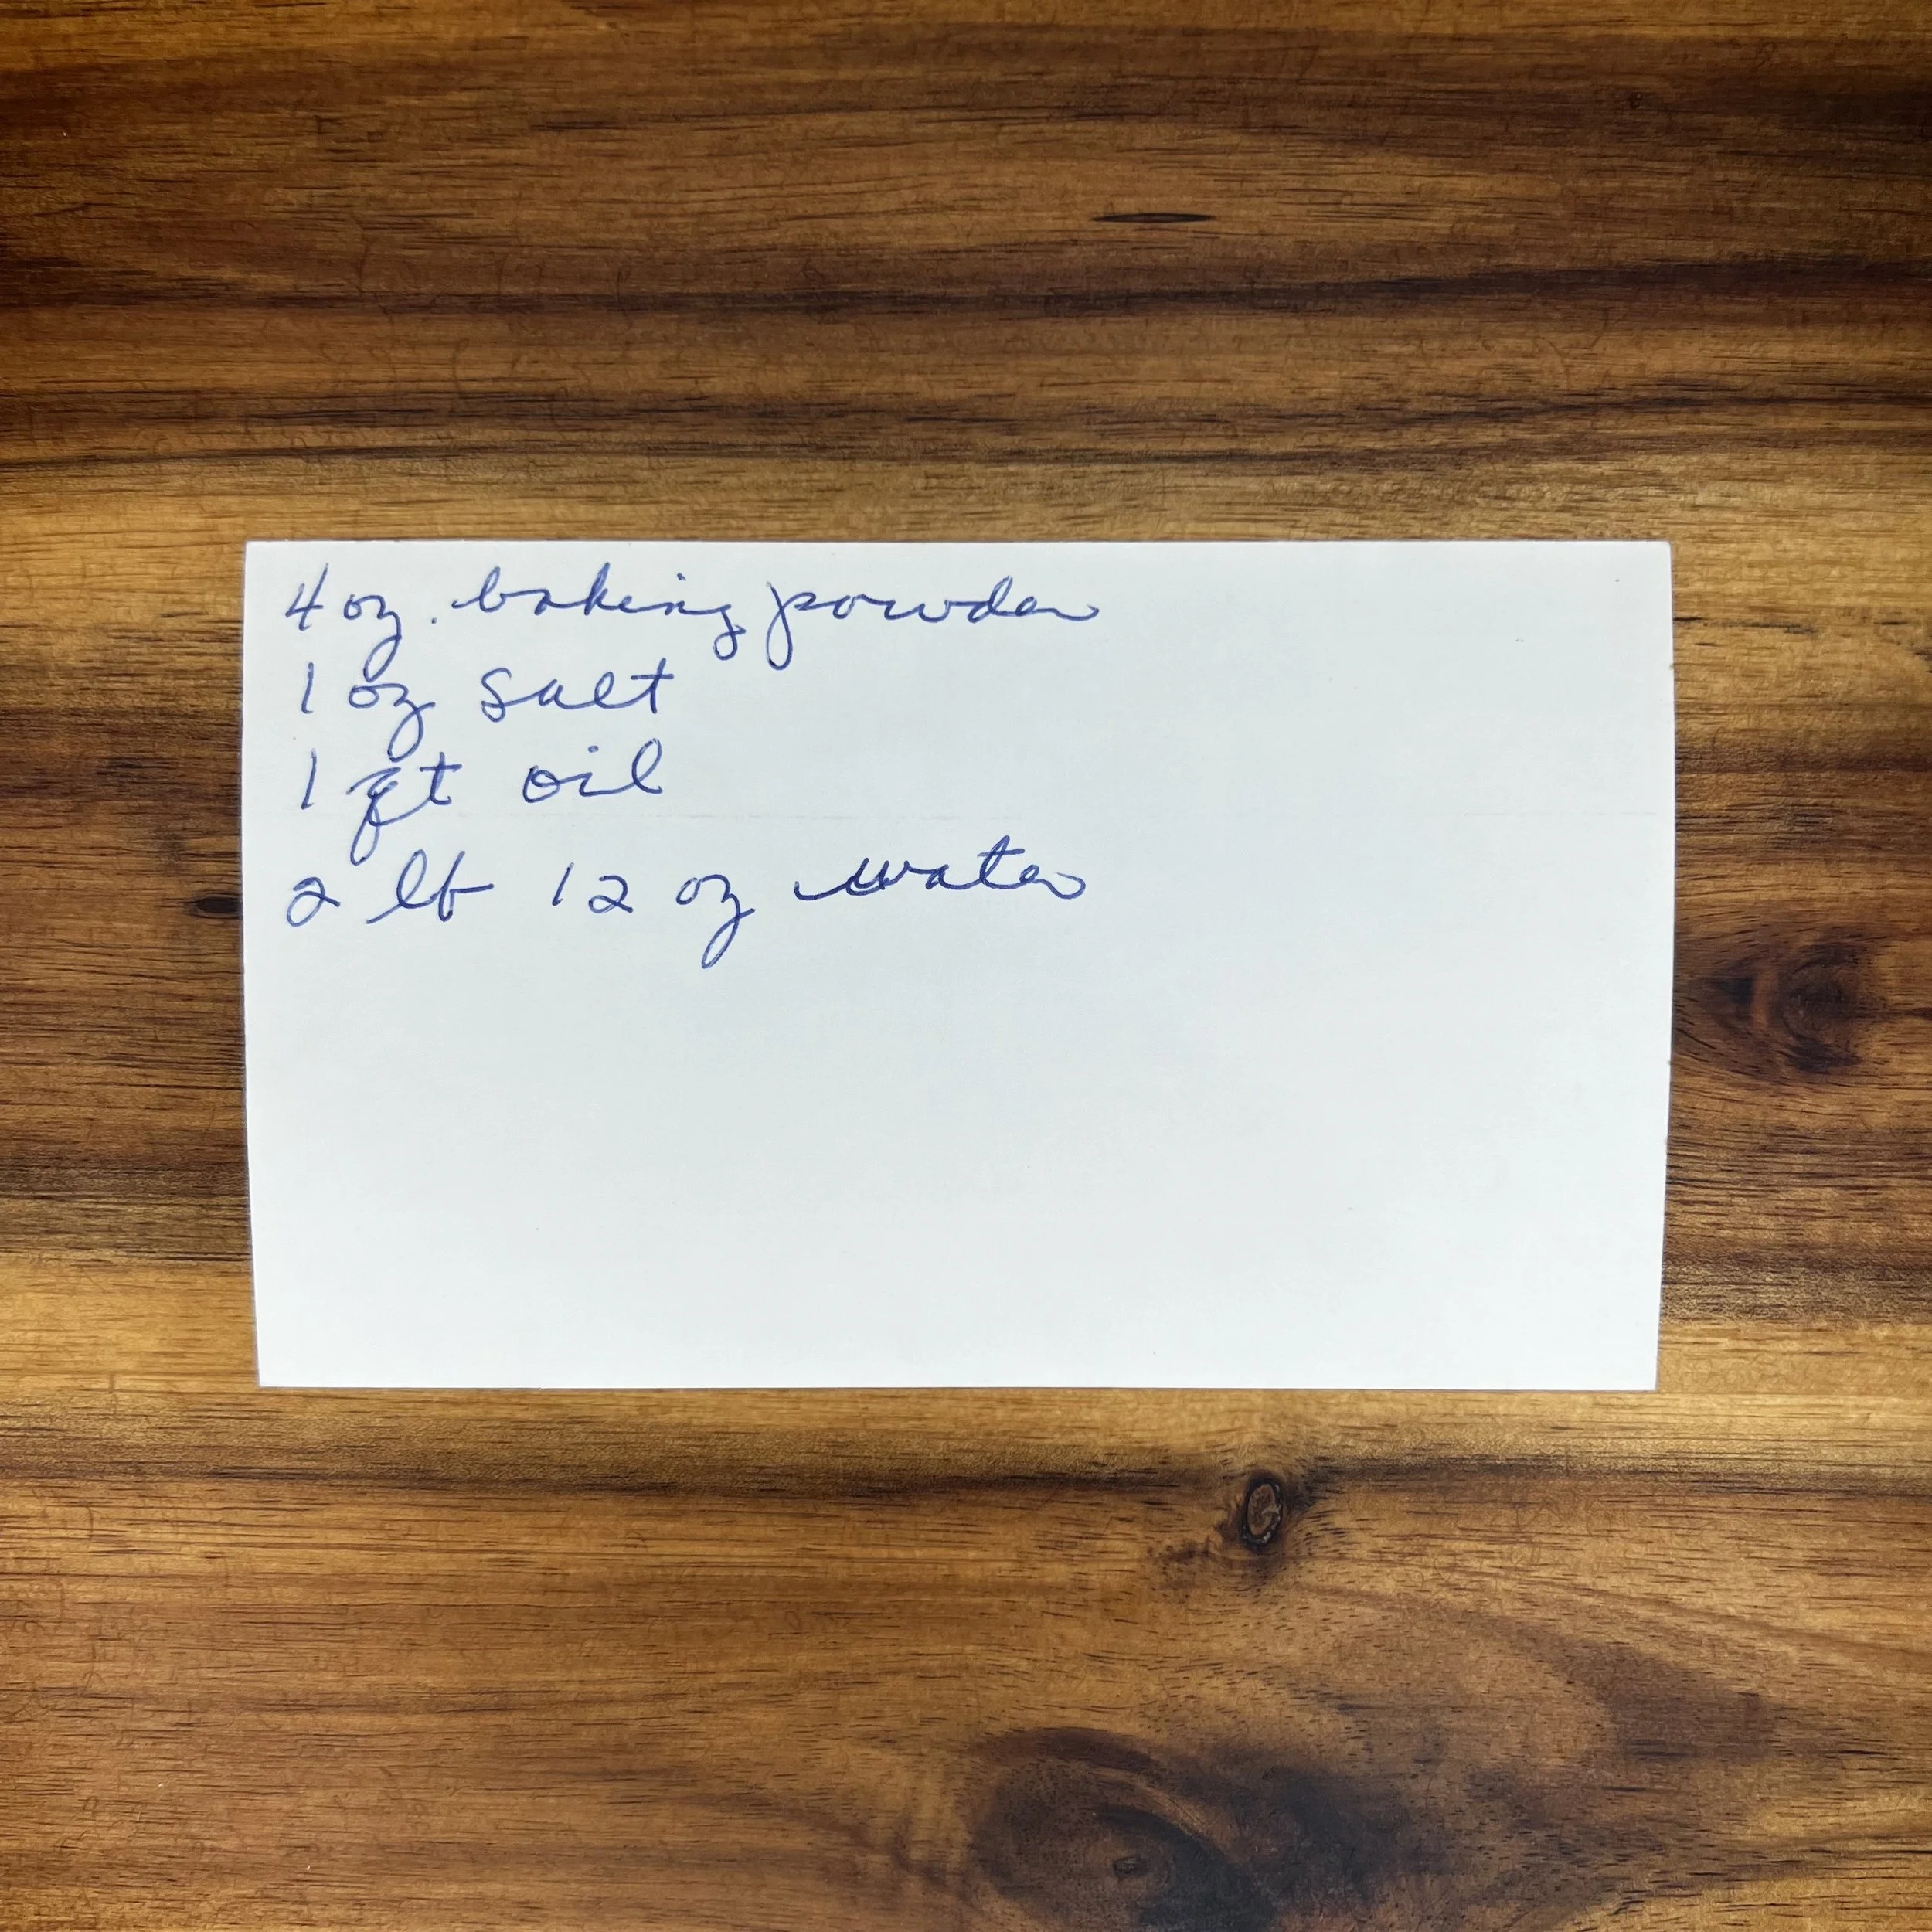 4 oz. baking powder
1 oz salt
1 qt oil
2 lb 12 oz water